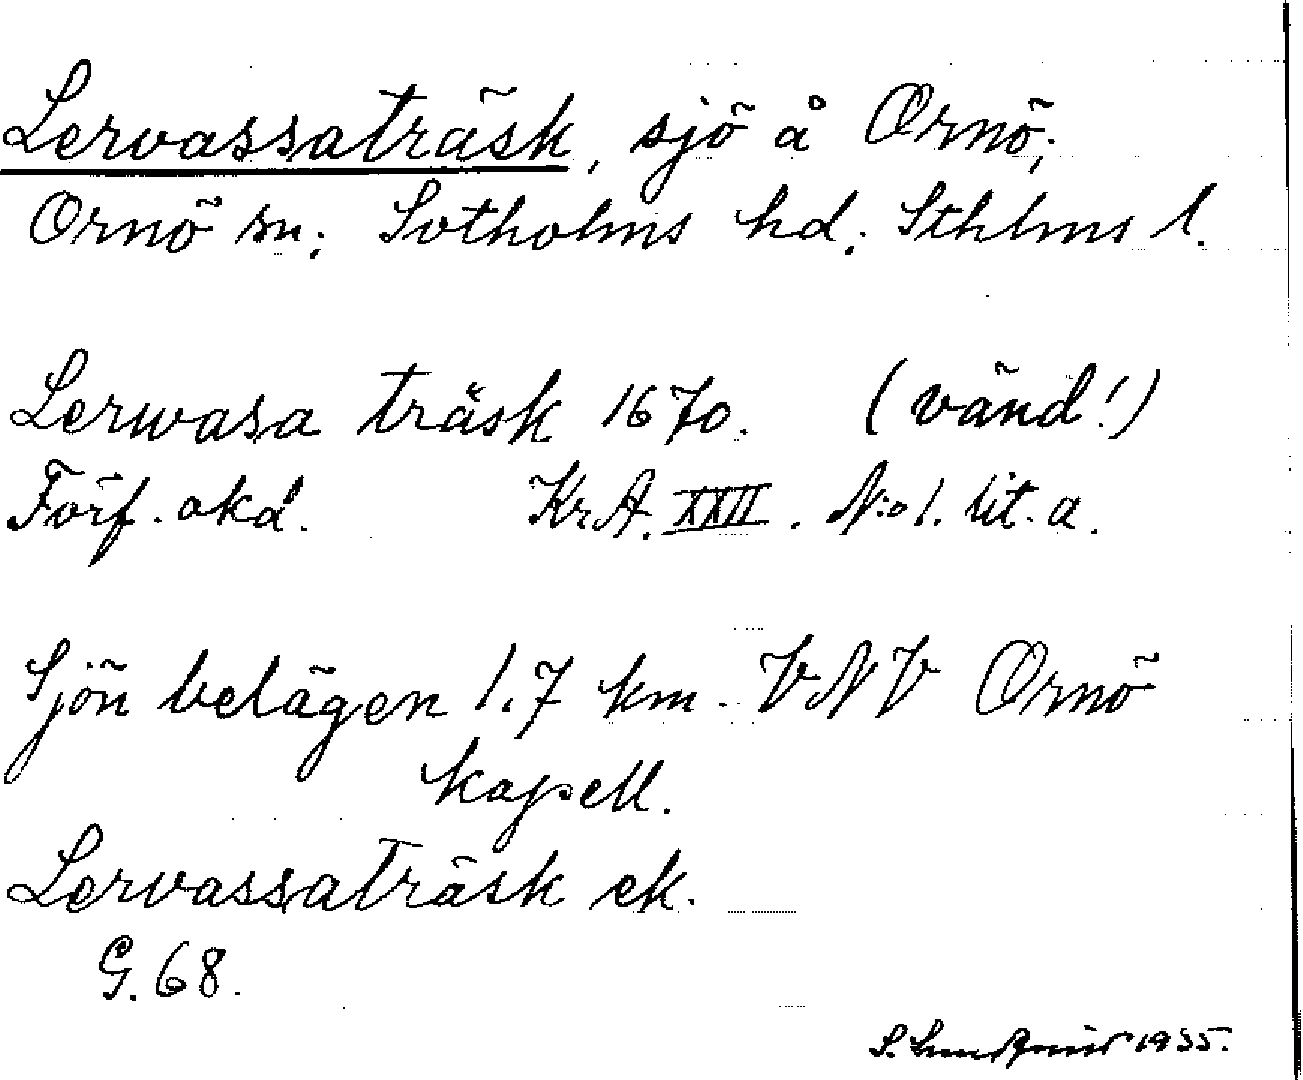 Lervassaträsk, sjö å Ornö;
Ornö sn; Sotholms hd; Sthlms l.
Lerwasa träsk 1670. (vänd!)
Förf. okd. KrA. XXII. N:o 1. lit. a.
Sjön belägen 1.7 km. VNV Ornö
kapell.
Lervassaträsk ek.
G. 68.
S. 1935.